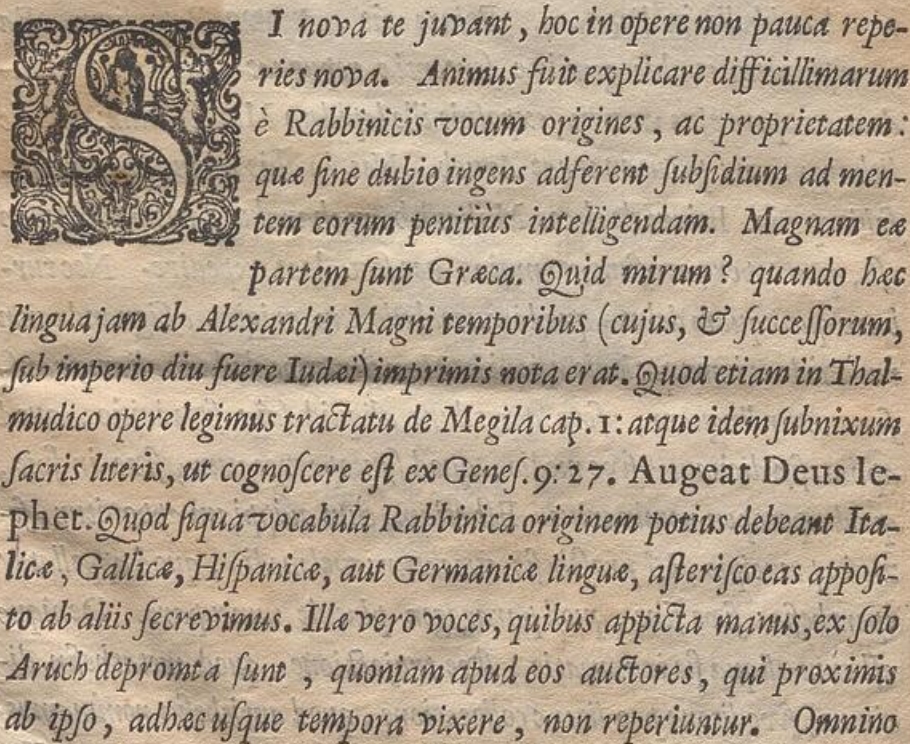 SI nova te juvant, hoc in opere non pauca repe-
ries nova. Animus fuit explicare difficillimarum
è Rabbinicis vocum origines, ac proprietatem:
quæ sine dubio ingens adferent subsidium ad men-
tem eorum penitiùs intelligendam. Magnam eæ
partem sunt Græca. Quid mirum? quando hæc
lingua jam ab Alexandri Magni temporibus (cujus, & successorum,
sub imperio diu fuere Iudæi) imprimis nota erat. Quod etiam in Thal-
mudico opere legimus tractatu de Megila cap. 1: atque idem subnixum
sacris literis, ut cognoscere est ex Genes. 9: 27. Augeat Deus Ie-
phet. Quod siqua vocabula Rabbinica originem potius debeant Ita-
licæ, Gallicæ, Hispanicæ, aut Germanicæ linguæ, asterisco eas apposi-
to ab aliis secrevimus. Illæ vero voces, quibus appicta manus, ex solo
Aruch depromta sunt, quoniam apud eos auctores, qui proximis
ab ipso, adhæc usque tempora vixere, non reperiuntur. Omnino